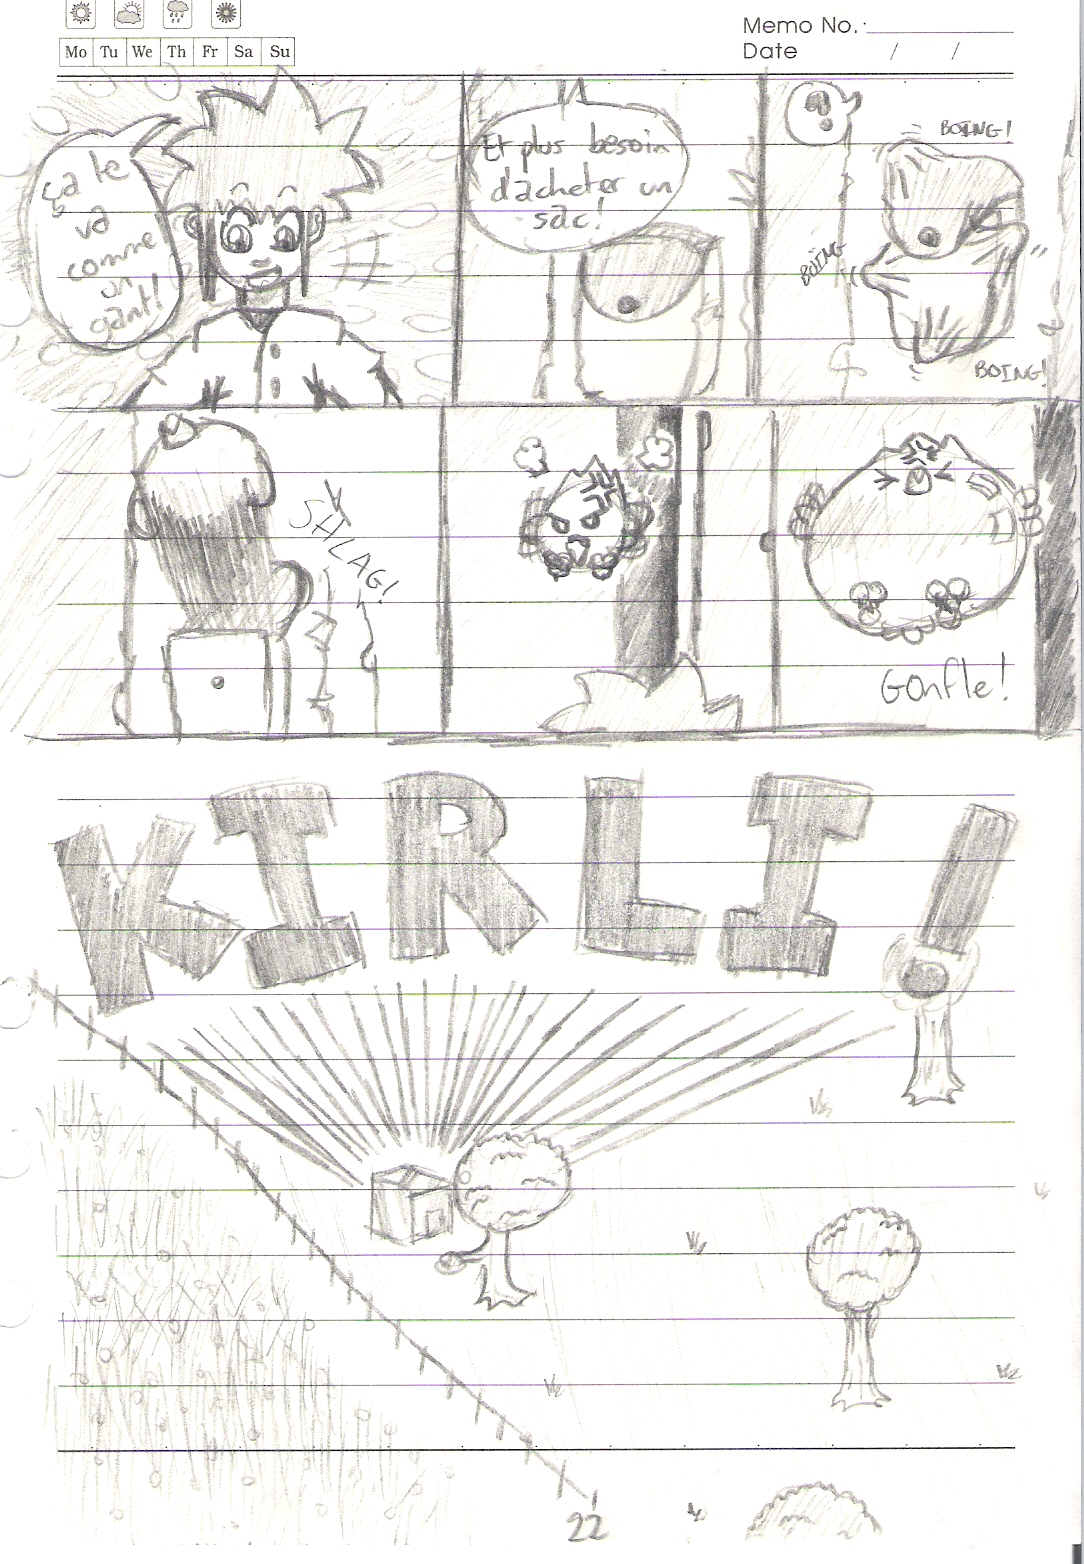 Memo No.:
Mo Tu We Th Fr Sa Su
Date / /
ça te
va
comme
un
gant!
Et plus besoin
d'acheter un
sac!
?
BOING!
BOING
BOING!
SHLAG!
Gonfle!
KIRLI!
22